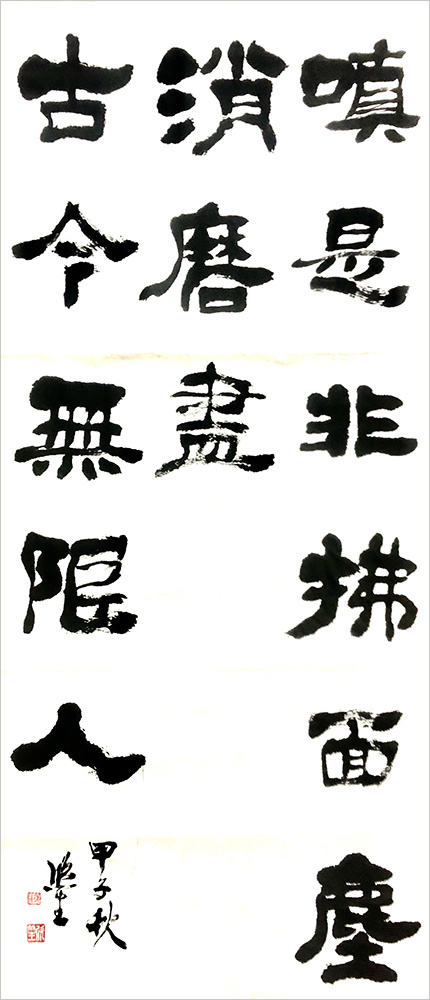 嗔是非拂面塵
消磨盡
古今無限人
甲子秋